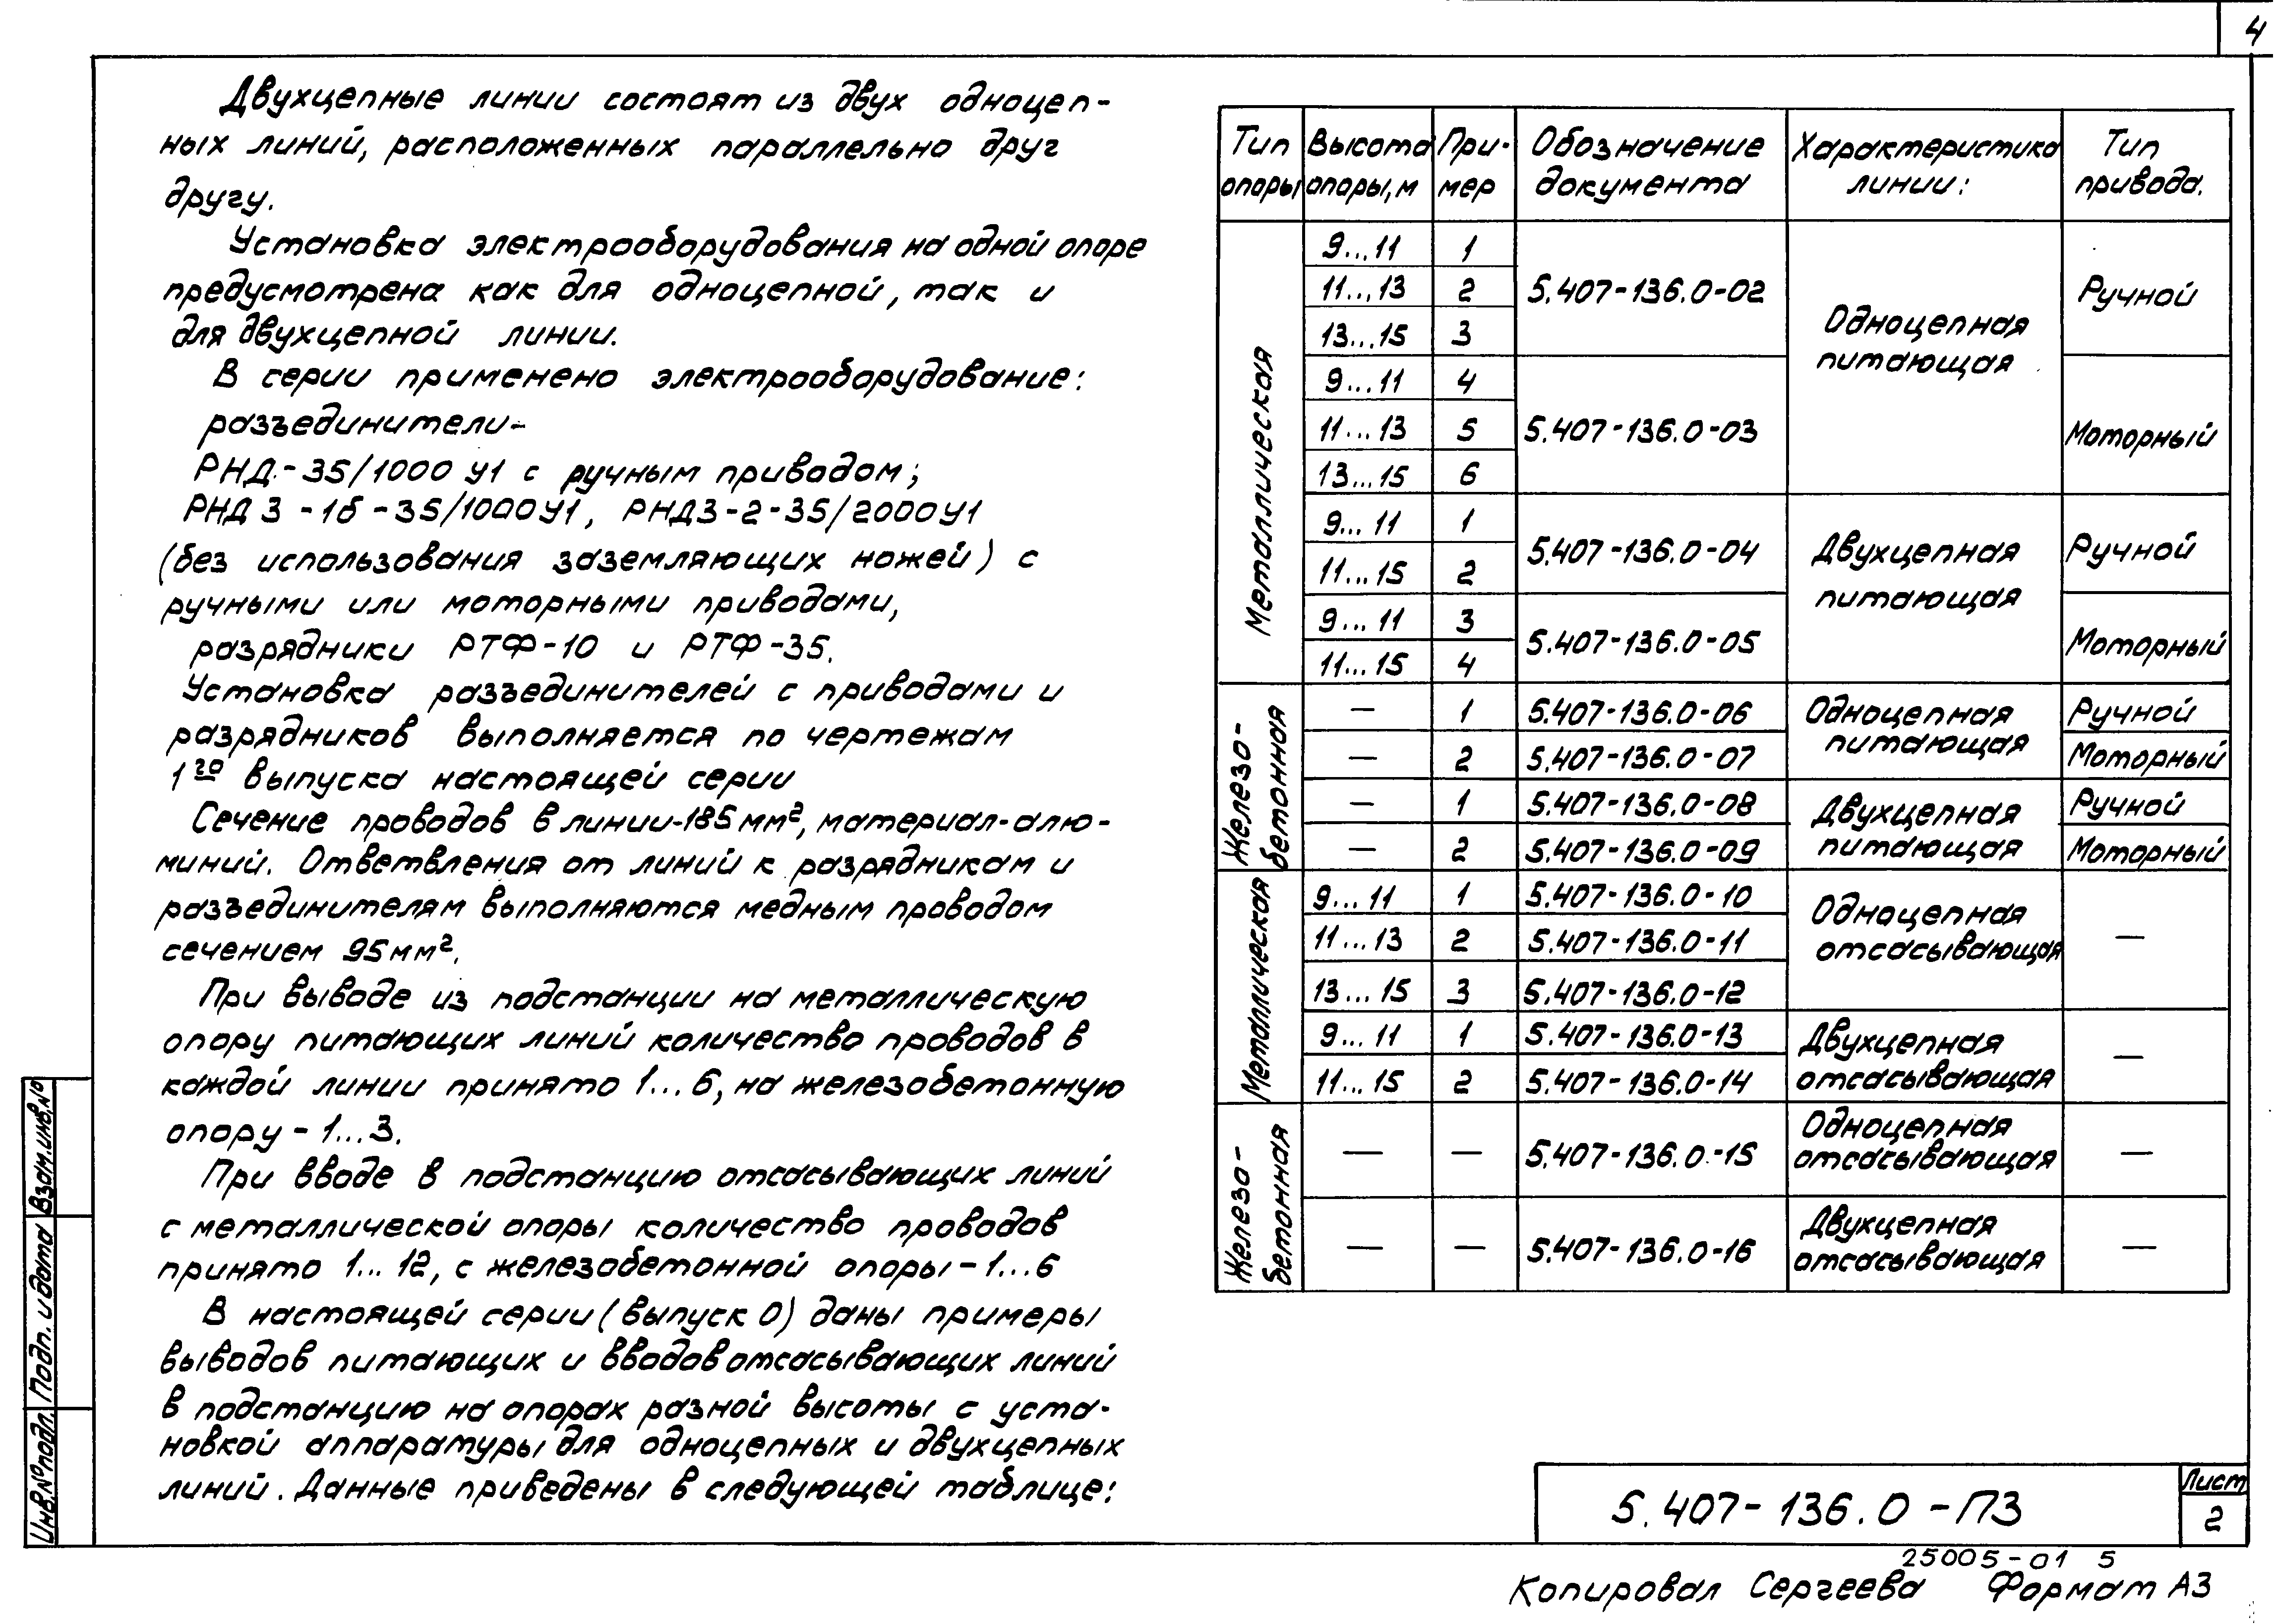 4
Двухцепные линии состоят из двух одноцеп-
ных линий, расположенных параллельно друг
другу.
Установка электрооборудования на одной опоре
предусмотрена как для одноцепной, так и
для двухцепной линии.
В серии применено электрооборудование:
разъединители-
РНД-35/1000 У1 с ручным приводом;
РНД З -1б -35/1000У1, РНДЗ-2-35/2000У1
(без использования заземляющих ножей) с
ручными или моторными приводами,
разрядники РТФ-10 и РТФ-35.
Установка разъединителей с приводами и
разрядников выполняется по чертежам
1го выпуска настоящей серии
Сечение проводов в линии-185 мм², материал-алю-
миний. Ответвления от линий к разрядникам и
разъединителям выполняются медным проводом
сечением 95мм².
При выводе из подстанции на металлическую
опору питающих линий количество проводов в
каждой линии принято 1...6, на железобетонную
опору - 1...3.
При вводе в подстанцию отсасывающих линий
с металлической опоры количество проводов
принято 1...12, с железобетонной опоры-1...6
В настоящей серии (выпуск 0) даны примеры
выводов питающих и вводов отсасывающих линий
в подстанцию на опорах разной высоты с уста-
новкой аппаратуры для одноцепных и двухцепных
линий. Данные приведены в следующей таблице:
Тип опоры | Высота опоры, м | При-мер | Обозначение документа | Характеристика линии: | Тип привода.
Металлическая | 9...11 | 1 | 5.407-136.0-02 | Одноцепная питающая | Ручной
11...13 | 2
13...15 | 3
9...11 | 4 | 5.407-136.0-03 | Моторный
11...13 | 5
13...15 | 6
9...11 | 1 | 5.407-136.0-04 | Двухцепная питающая | Ручной
11...15 | 2
9...11 | 3 | 5.407-136.0-05 | Моторный
11...15 | 4
Железо-бетонная | — | 1 | 5.407-136.0-06 | Одноцепная питающая | Ручной
— | 2 | 5.407-136.0-07 | Моторный
— | 1 | 5.407-136.0-08 | Двухцепная питающая | Ручной
— | 2 | 5.407-136.0-09 | Моторный
Металлическая | 9...11 | 1 | 5.407-136.0-10 | Одноцепная отсасывающая | —
11...13 | 2 | 5.407-136.0-11
13...15 | 3 | 5.407-136.0-12
9...11 | 1 | 5.407-136.0-13 | Двухцепная отсасывающая | —
11...15 | 2 | 5.407-136.0-14
Железо-бетонная | — | — | 5.407-136.0-15 | Одноцепная отсасывающая | —
— | — | 5.407-136.0-16 | Двухцепная отсасывающая | —
Взам.инв.№
Подп. и дата
Инв.№подл.
5.407-136.0-ПЗ
Лист
2
25005-01 5
Копировал Сергеева Формат А3